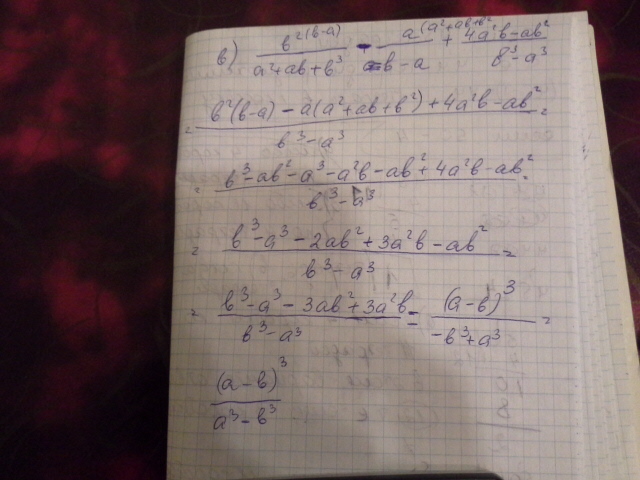 в) в²⁽ᵇ⁻ᵃ⁾/(a²+ab+b³) - a(a²+ab+b²/(b-a) + (4a²b-ab²)/(b³-a³)
= (b²(b-a) - a(a²+ab+b²) + 4a²b-ab²)/(b³-a³) =
= (b³-ab²-a³-a²b-ab²+4a²b-ab²)/(b³-a³) =
= (b³-a³-2ab²+3a²b-ab²)/(b³-a³) =
= (b³-a³-3ab²+3a²b)/(b³-a³) = (a-b)³/(-b³+a³) =
(a-b)³/(a³-b³)